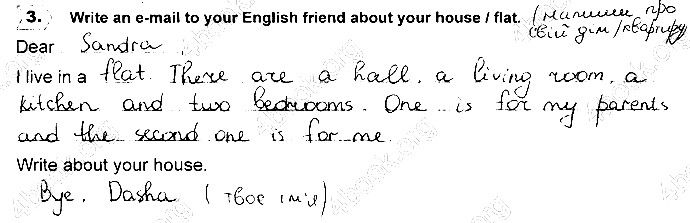 3. Write an e-mail to your English friend about your house / flat. (напишеш про
свій дім / квартиру)
Dear Sandra,
I live in a flat. There are a hall, a living room, a
kitchen and two bedrooms. One is for my parents
and the second one is for me.
Write about your house.
Bye. Dasha (твоє ім'я)